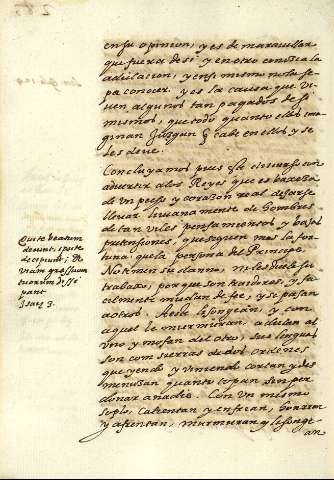 en su opinion, y es de marauillar
que fuera de si y en otro conozca la
adulacion, y en si mismo no la se
pa conocer. y es la causa que vi
uen algunos tan pagados de si
mismos, que todo quanto ellos ima
ginan Juzgan q̃ cabe en ellos y se
les deue.
Concluyamos pues este discurso con
aduertir a los Reyes que es baxeza
de un pecho y corazon real dejarse
lleuar liuianamente de hombres
de tan viles pensamientos y bajas
pretensiones, que siguen mas la for
tuna que la persona del Principe.
No temen su danno, ni les duele su
trabajo, porque son traidores, y fa
cilmente mudan de fee, y se pasan
a otros. A este lisongean, y con
aquel le murmuran, adulan al
vno y mofan del otro, sus lenguas
son como sierras de dos ordenes
que yendo y viniendo cortan y des
menuzan quanto topan sin per
donar a nadie. Con un mismo
soplo, calientan y enfrian, honrran
y afrentan, murmuran y lisonge
an
Qui te beatum
dicunt, ipsi te
decipiunt; et
viam gressuum
tuorum dissi
pant
Isaiæ 3.